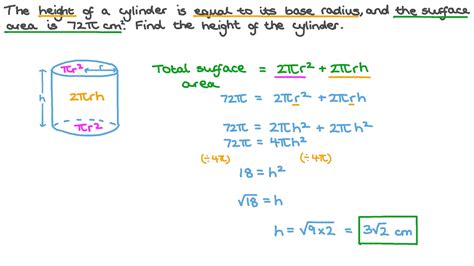 The height of a cylinder is equal to its base radius, and the surface
area is 72π cm². Find the height of the cylinder.
πr² r
h 2πrh
πr²
Total surface area = 2πr² + 2πrh
72π = 2πr² + 2πrh
72π = 2πh² + 2πh²
72π = 4πh²
(÷4π) (÷4π)
18 = h²
√18 = h
h = √9×2 = 3√2 cm